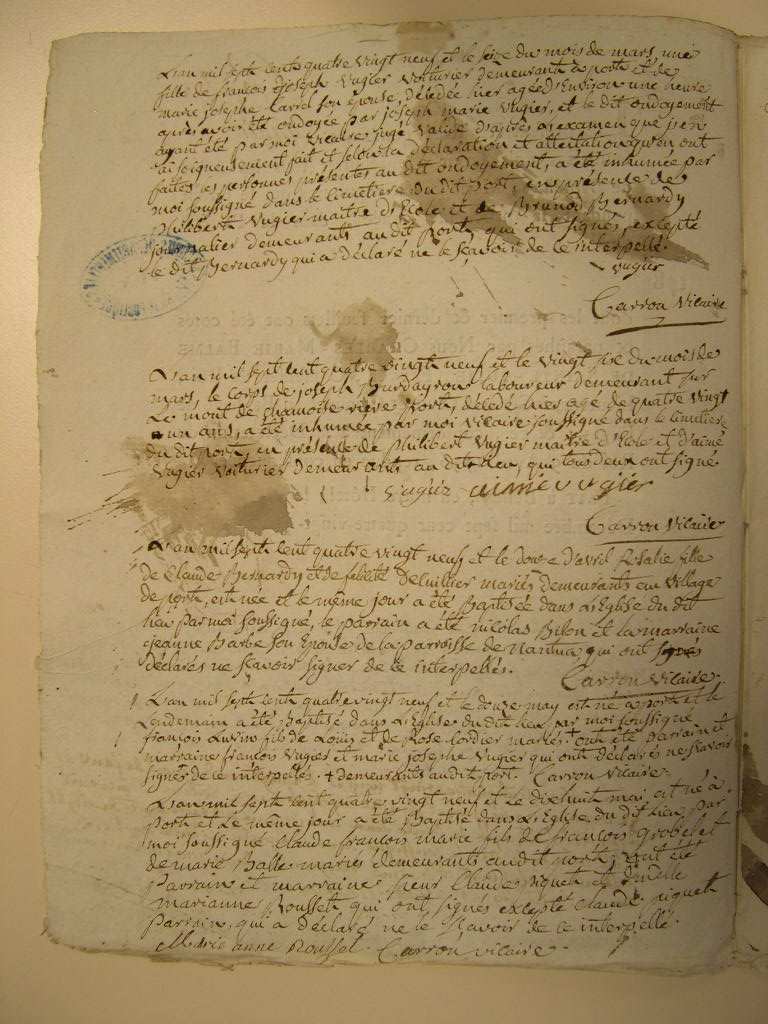 L'an mil sept cents quatre vingt neuf et le seize du mois de mars, une
fille de françois Joseph Vugier voiturier demeurant à port et de
marie josephe Carrel son épouse, décédée hier agée d'Environ une heure
après avoir été ondoyée par joseph marie Vugier, et le dit ondoyement
ayant été par moi vicaire jugé valide d'après l'examen que j'en
ai soigneusement fait et selon la déclaration et attestation qu'en ont
faites les personnes présentes au dit ondoyement, a été inhumée par
moi soussigné dans le Cimetiere du dit port, en présence de
Philibert Vugier maître d'Ecole et de Brunod Bernardy
journalier demeurants au dit Port, qui ont signés, excepté
le dit Bernardy qui a déclaré ne le sçavoir de ce interpellé.
vugier
Carron Vicaire
L'an mil sept cent quatre vingt neuf et le vingt du mois de
mars, le corps de joseph laboureur demeurant sur
Le mont de chamoise rière Port, décédé hier agé de quatre vingt
un ans, a été inhumée par moi vicaire soussigné dans le cimetiere
du dit port, en présence de Philibert Vugier maître d'Ecole et d'aimé
Vugier voiturier demeurants au dit lieu, qui tous deux ont signé
vugier aimé vugier
Carron Vicaire
L'an mil sept cent quatre vingt neuf et le douze d'avril Rosalie fille
de Claude Bernardy et de felicité mariés demeurants au village
de port, est née et le même jour a été Baptisée dans L'Eglise du dit
lieu par moi soussigné, le parrain a été nicolas Bilon et la marraine
jeanne Barbe son Epouse de la parroisse de nantua qui ont
déclarés ne sçavoir signer de ce interpellés.
Carron Vicaire.
L'an mil sept cents quatre vingt neuf et le douze may est né a port et le
Lendemain a été Baptisé dans L'Eglise du dit lieu par moi soussigné
françois fils de Louis et de Rose Cordier mariés + ont été parrain et
marraine françois Vugier et marie josephe Vugier qui ont déclarés ne sçavoir
signer de ce interpellés. + demeurants au dit port. Carron Vicaire.
L'an mil sept cent quatre vingt neuf et Le dixhuit mai est né à
Port et Le même jour a été Baptisé dans L'Eglise du dit Lieu par
moi soussigné Claude françois marie fils de françois Grobel et
de marie Balle mariés demeurants au dit port; ont été
Parrain et marraine sieur Claude piquet et
marianne Rousset qui ont signés excepté Claude piquet
Parrain, qui a déclaré ne le sçavoir de ce interpellé.
Marie anne Roussel. Carron Vicaire.